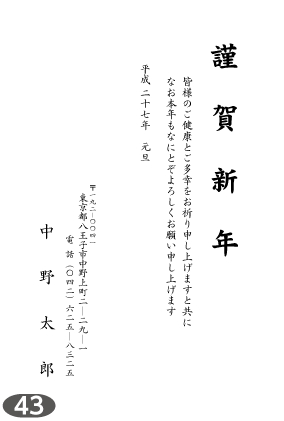 謹賀新年
皆様のご健康とご多幸をお祈り申し上げますと共に
なお本年もなにとぞよろしくお願い申し上げます
平成二十七年 元旦
〒一九二―〇〇四一
東京都八王子市中野上町二―二九―一
電話(〇四二)六二五―八三二五
中野太郎
43